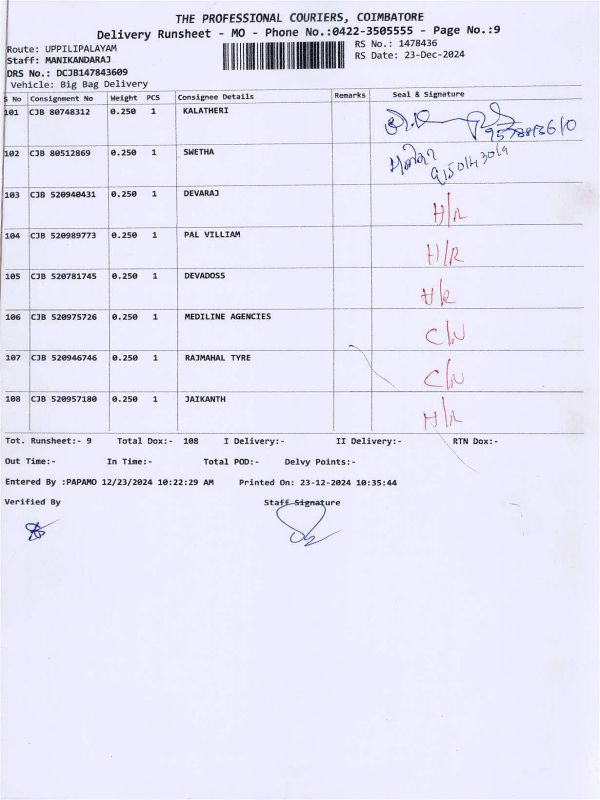 THE PROFESSIONAL COURIERS, COIMBATORE
Delivery Runsheet - MO - Phone No.:0422-3505555 - Page No.:9
Route: UPPILIPALAYAM
RS No.: 1478436
Staff: MANIKANDARAJ
RS Date: 23-Dec-2024
DRS No.: DCJB147843609
Vehicle: Big Bag Delivery
S No Consignment No Weight PCS Consignee Details Remarks Seal & Signature
101 CJB 80748312 0.250 1 KALATHERI
102 CJB 80512869 0.250 1 SWETHA
103 CJB 520940431 0.250 1 DEVARAJ H/R
104 CJB 520989773 0.250 1 PAL VILLIAM H/R
105 CJB 520781745 0.250 1 DEVADOSS H/R
106 CJB 520975726 0.250 1 MEDILINE AGENCIES C/N
107 CJB 520946746 0.250 1 RAJMAHAL TYRE C/N
108 CJB 520957180 0.250 1 JAIKANTH H/R
Tot. Runsheet:- 9 Total Dox:- 108 I Delivery:- II Delivery:- RTN Dox:-
Out Time:- In Time:- Total POD:- Delvy Points:-
Entered By :PAPAMO 12/23/2024 10:22:29 AM Printed On: 23-12-2024 10:35:44
Verified By Staff Signature